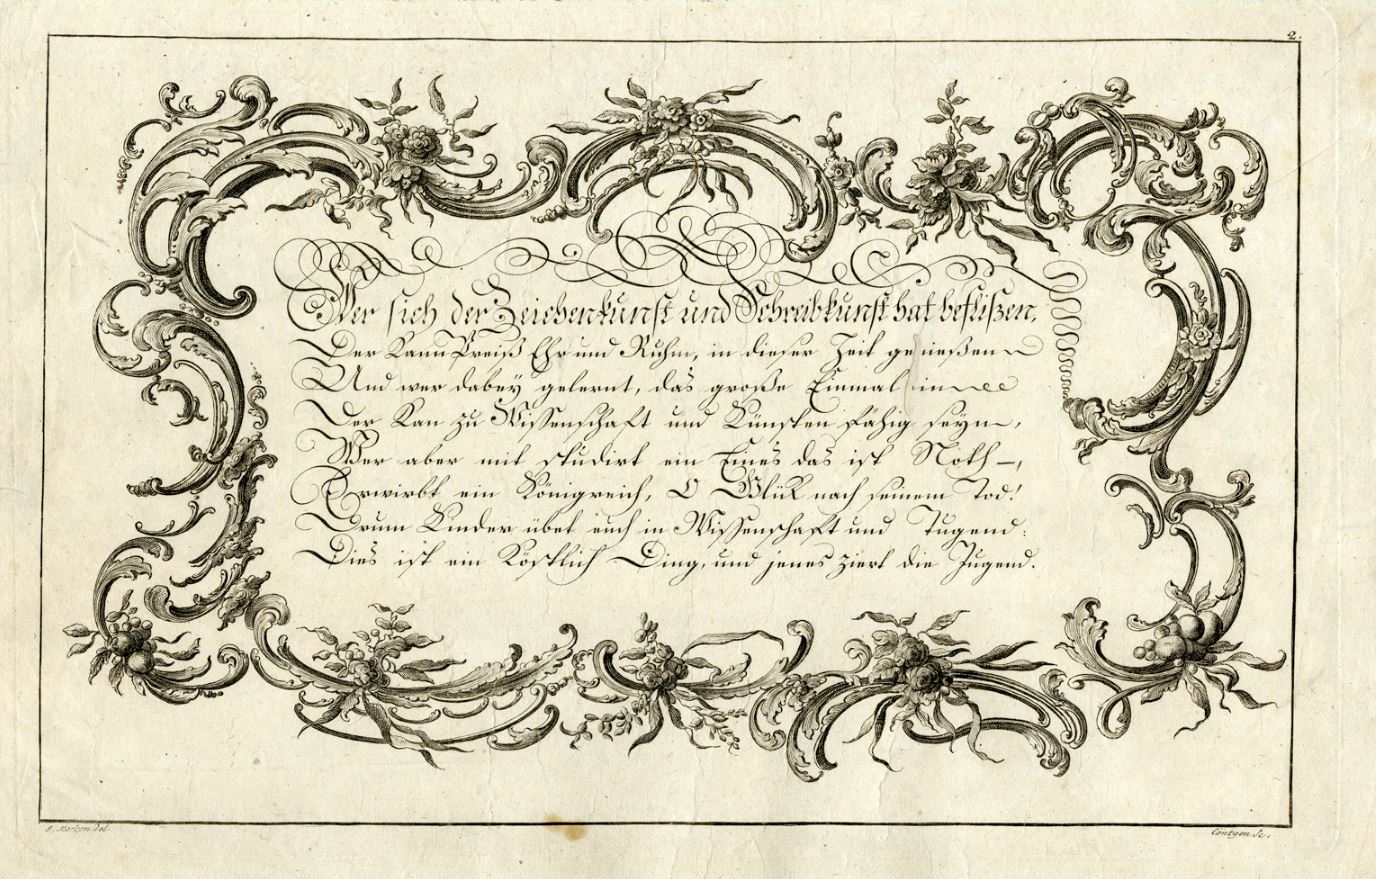 2.
Wer sich der Zeichenkunst und Schreibkunst hat beflißen,
Der kann Preiß Ehr und Ruhm, in dieser Zeit genießen
Und wer dabey gelernt, das große Einmal
Der Kan zu Wissenschaft und Künsten fähig seyn,
Wer aber mit studirt ein Eines das ist Noth,
Erwirbt ein Königreich, O Glük nach seinem Tod!
Drum Kinder übet euch in Wissenschaft und Tugend:
Dies ist ein Köstlich Ding, und jenes ziert die Jugend.
A. Merken del.
Cöntgen Sc.